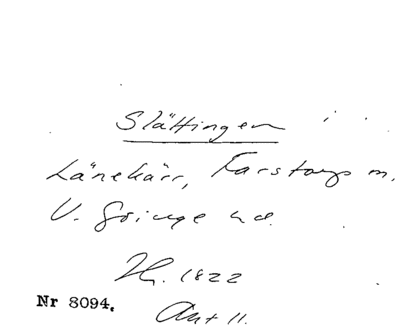 Slättingen i
Länekärr, Karstorps m.
V. Gringe hd.
Th. 1822
Nr 8094. Ant 11.